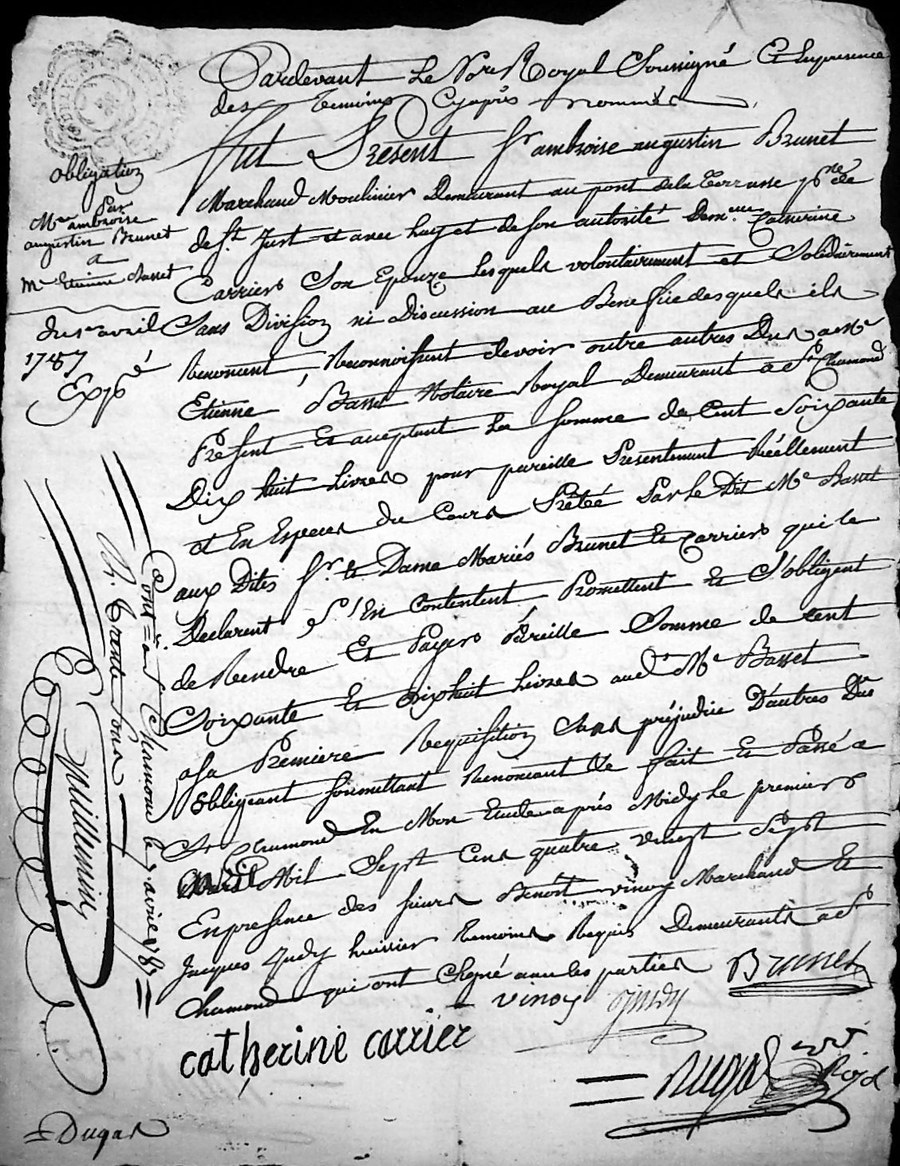 Pardevant Le Nore Royal Soussigné Et Enpresence
des Temoins Cyaprès nommés
fut Présent Sr ambroise augustin Brunet
Marchand Moulinier Demeurant au pont dela Terrasse psse de
de St Just et avec luy et de son autorité Demelle Catherine
Carrier Son Epouze Lesquels volontairement et Solidairement
Sans Division ni Discussion au Benefice desquels ils
Renoncent, Reconnoissent devoir outre autres Dus a Me
Etienne Basset Notaire Royal Demeurant a St Chamond
Present et acceptant La Somme de Cent Soixante
Dix huit Livres pour pareille Presentement Réellement
et En Especes du Cours Prêtée Par le Dit Me Basset
aux Dits Sr et Dame Mariés Brunet et Carrier qui le
Declarent s'En Contentent Promettent Et S'obligent
de Rendre Et Payer Pareille Somme de Cent
Soixante Et dix huit Livres aud. Me Basset
a sa Premiere Requisition Sans préjudice D'autres Dus
obligeant Soumettant Renoncant &e fait Et Passé a
St Chamond En Mon Etude après Midy le premier
avril Mil Sept Cens quatre vingt Sept
Enpresence des sieurs Benoît vinoy Marchand Et
Jacques Judy huissier Temoins Requis Demeurants a St
Chamond qui ont Signé avec les parties Brunet
vinoy Judy
catherine carrier
Dugas nore Royal
obligation
Par
Me ambroise
augustin Brunet
a
Me Etienne Basset
du 1er avril
1787
Expé
Cont. a St Chamond le 7 avril 1787
R. trente sous
Guillemin
Dugas